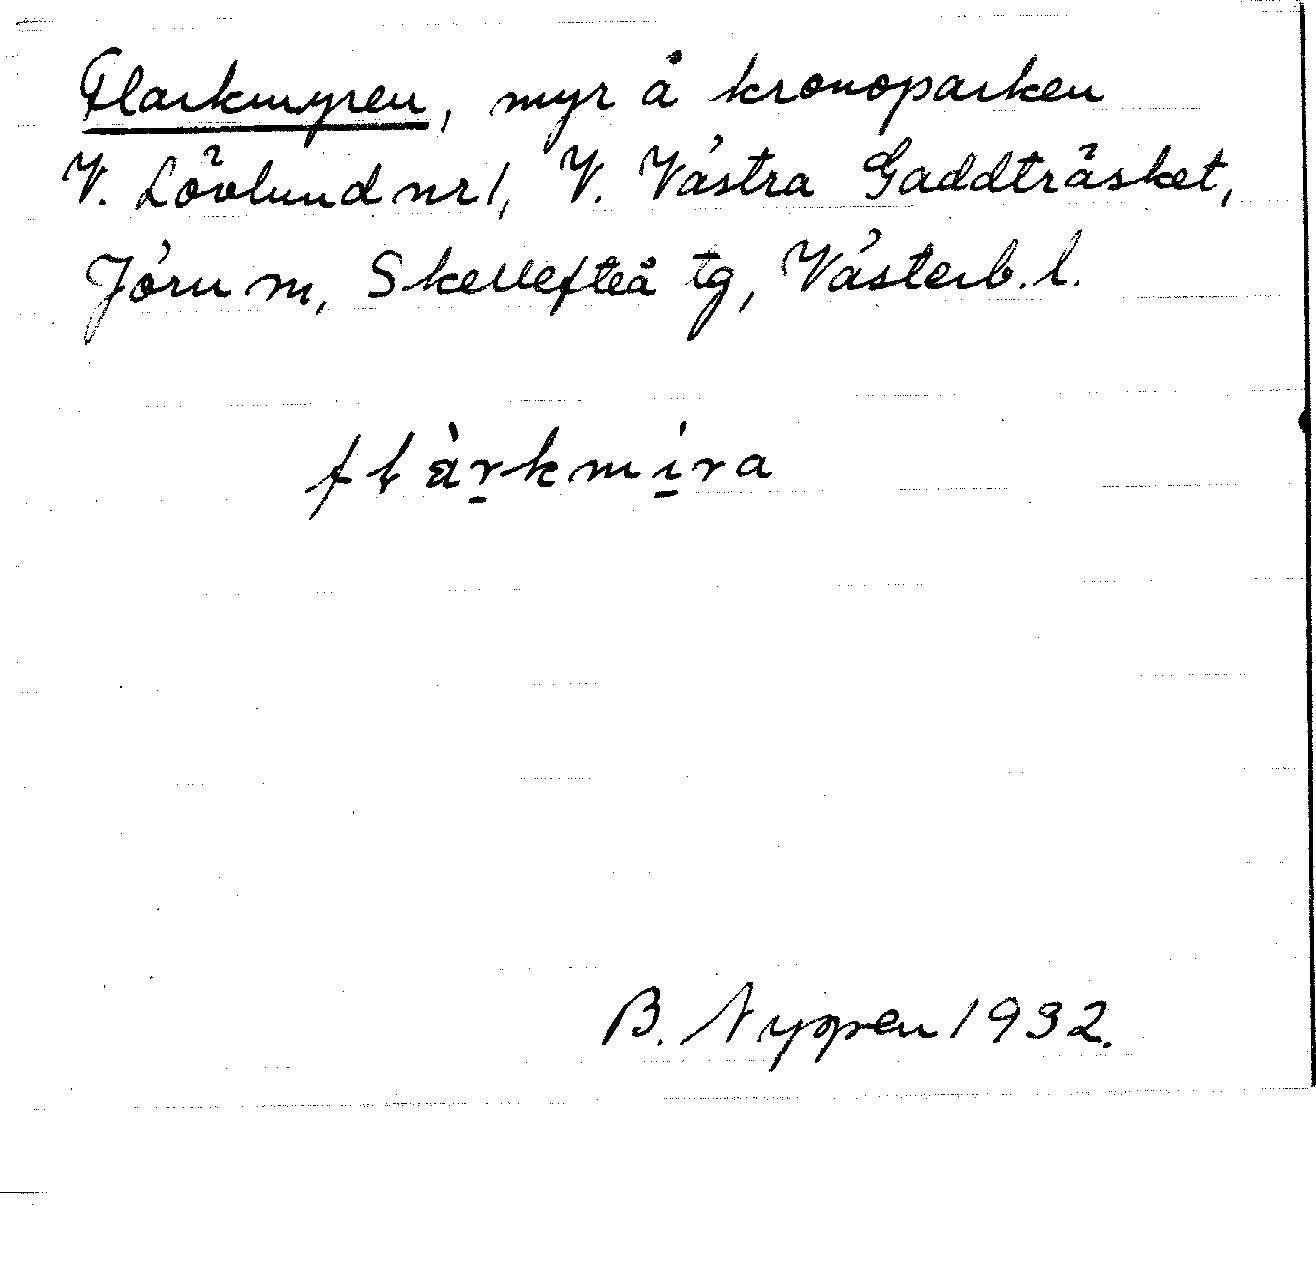 Flarkmyren, myr å kronoparken
V. Lövlund nr 1, V. Västra Gaddträsket,
Jörn m, Skellefteå tg, Västerb. l.
flàr̠kmí̠ra
B. Nygren 1932.